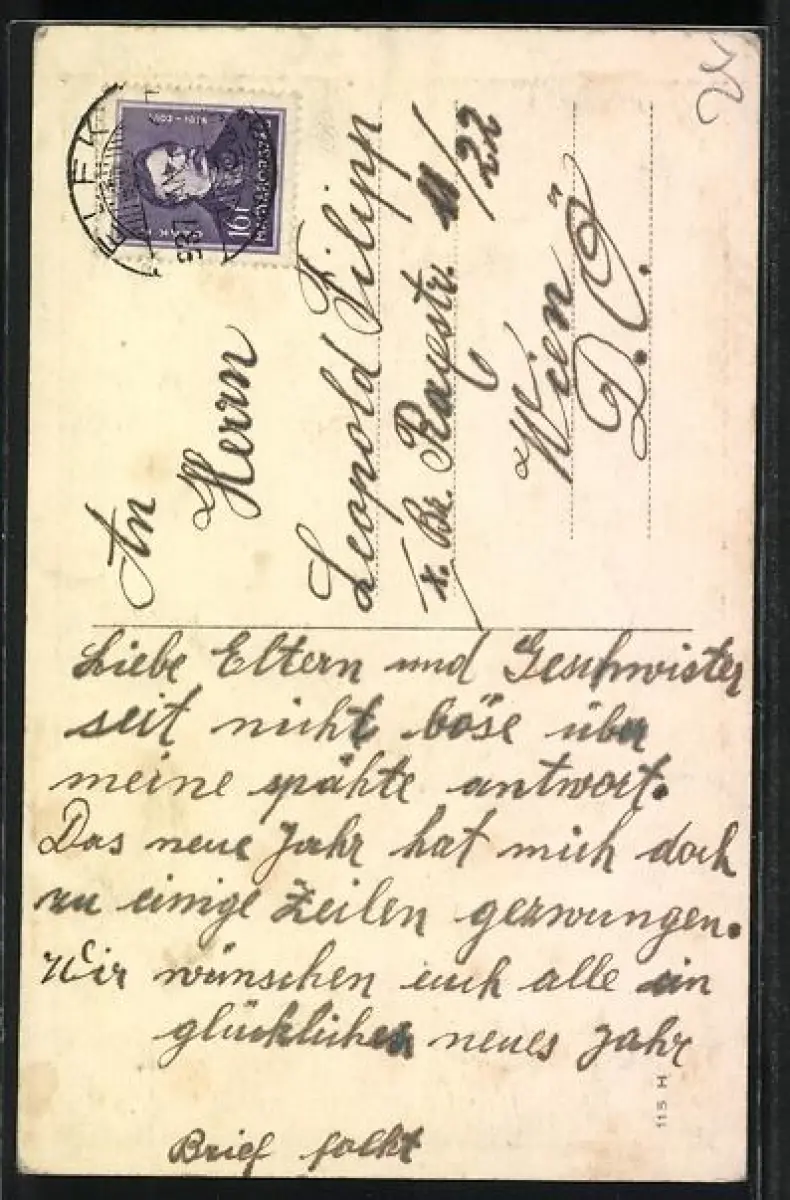 An
Herrn
Leopold Filipp
X. Bz. Rayestr. 11/22
Wien
D. Ö.
16f
MAGYARORSZÁG
Liebe Eltern und Geschwister
seit nicht böse über
meine spähte antwort.
Das neue Jahr hat mich doch
zu einige Zeilen gezwungen.
Wir wünschen euch alle ein
glückliches neues Jahr
Brief folkt
115 H